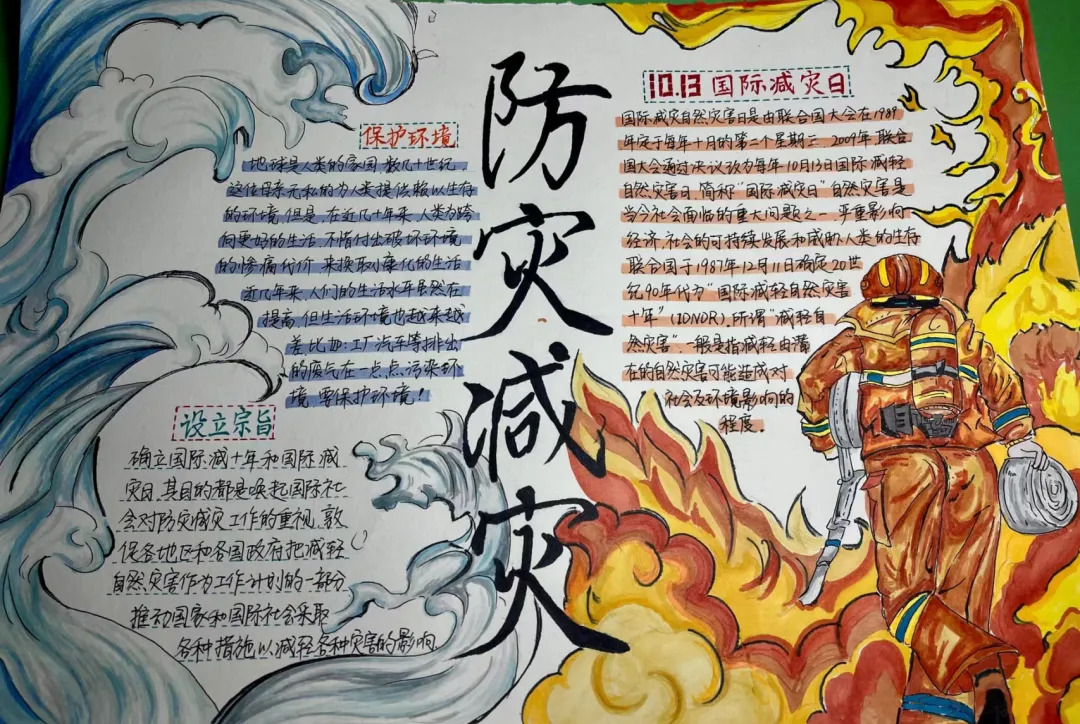 防灾减灾
保护环境
地球是人类的家园,数几十世纪,
这位母亲无私的为人类提供赖以生存
的环境,但是,在近几十年来,人类为跨
向更好的生活,不惜付出破坏环境
的惨痛代价,来换取小康化的生活
近几年来,人们的生活水平虽然在
提高,但生活环境也越来越
差,比如:工厂汽车等排出
的废气在一点点污染环
境,要保护环境!
设立宗旨
确立国际减十年和国际减
灾日,其目的都是唤起国际社
会对防灾减灾工作的重视,敦
促各地区和各国政府把减轻
自然灾害作为工作计划的一部分
推动国家和国际社会采取
各种措施以减轻各种灾害的影响
10.13 国际减灾日
国际减灾自然灾害日是由联合国大会在1989
年定于每年十月的第二个星期三 2009年,联合
国大会通过决议改为每年10月13日国际减轻
自然灾害日,简称"国际减灾日"自然灾害是
当今社会面临的重大问题之一,严重影响
经济,社会的可持续发展和威胁人类的生存
联合国于1987年12月11日确定20世
纪90年代为"国际减轻自然灾害
十年"(IDNDR),所谓"减轻自
然灾害",一般是指减轻由潜
在的自然灾害可能造成对
社会及环境影响的
程度。